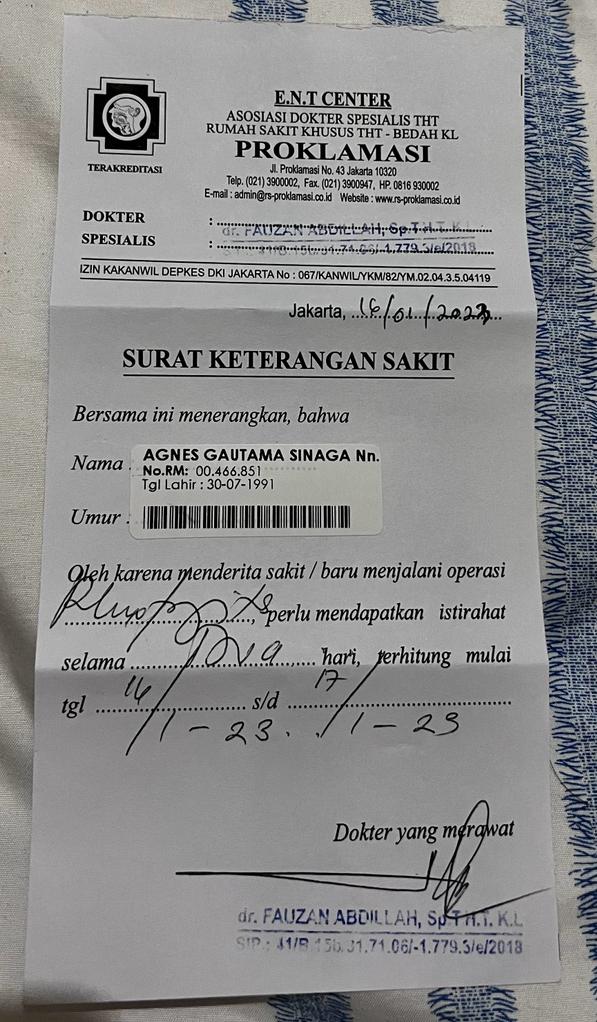 E.N.T CENTER
ASOSIASI DOKTER SPESIALIS THT
RUMAH SAKIT KHUSUS THT - BEDAH KL
PROKLAMASI
Jl. Proklamasi No. 43 Jakarta 10320
Telp. (021) 3900002, Fax. (021) 3900947, HP. 0816 930002
E-mail : admin@rs-proklamasi.co.id Website : www.rs-proklamasi.co.id
TERAKREDITASI
DOKTER : dr. FAUZAN ABDILLAH, Sp.T.H.T. K.L
SPESIALIS : 41/B.15b/31.74.06/-1.779.3/e/2018
IZIN KAKANWIL DEPKES DKI JAKARTA No : 067/KANWIL/YKM/82/YM.02.04.3.5.04119
Jakarta, 16/01/2023
SURAT KETERANGAN SAKIT
Bersama ini menerangkan, bahwa
Nama : AGNES GAUTAMA SINAGA Nn.
No.RM: 00.466.851
Tgl Lahir : 30-07-1991
Umur :
Oleh karena menderita sakit / baru menjalani operasi
, perlu mendapatkan istirahat
selama Dua hari, terhitung mulai
tgl 16/1-23 s/d 17/1-23
Dokter yang merawat
dr. FAUZAN ABDILLAH, Sp.T.H.T. K.L
SIP.: 41/B.15b.31.71.06/-1.779.3/e/2018